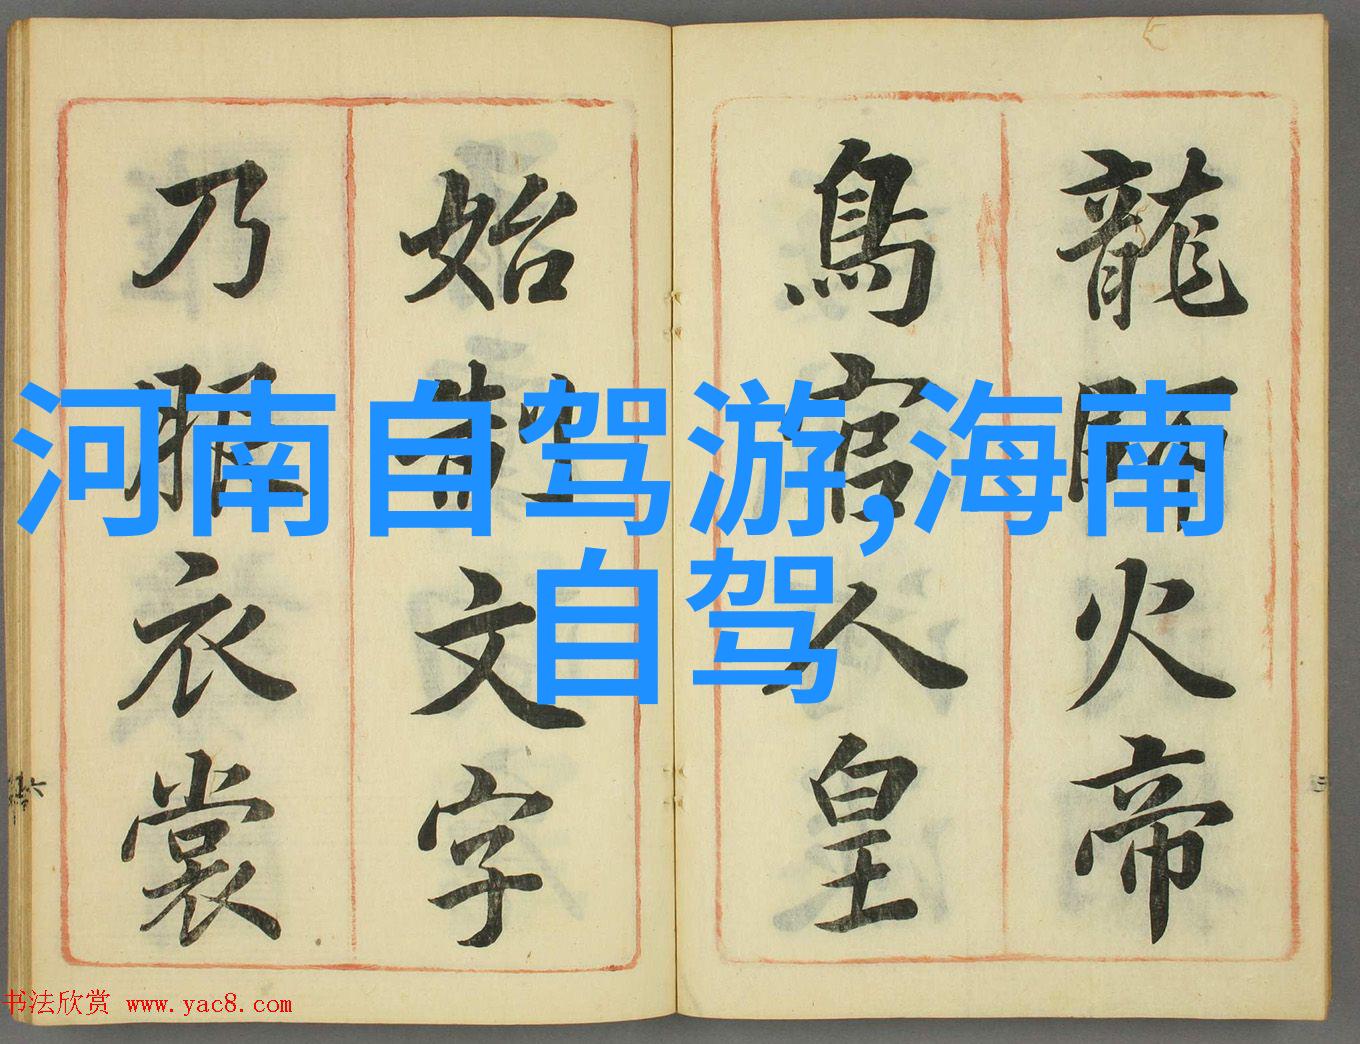 龍師火帝
鳥官人皇
始制文字
乃服衣裳
河南自驾游,海南
自驾
书法欣赏 www.yac8.com